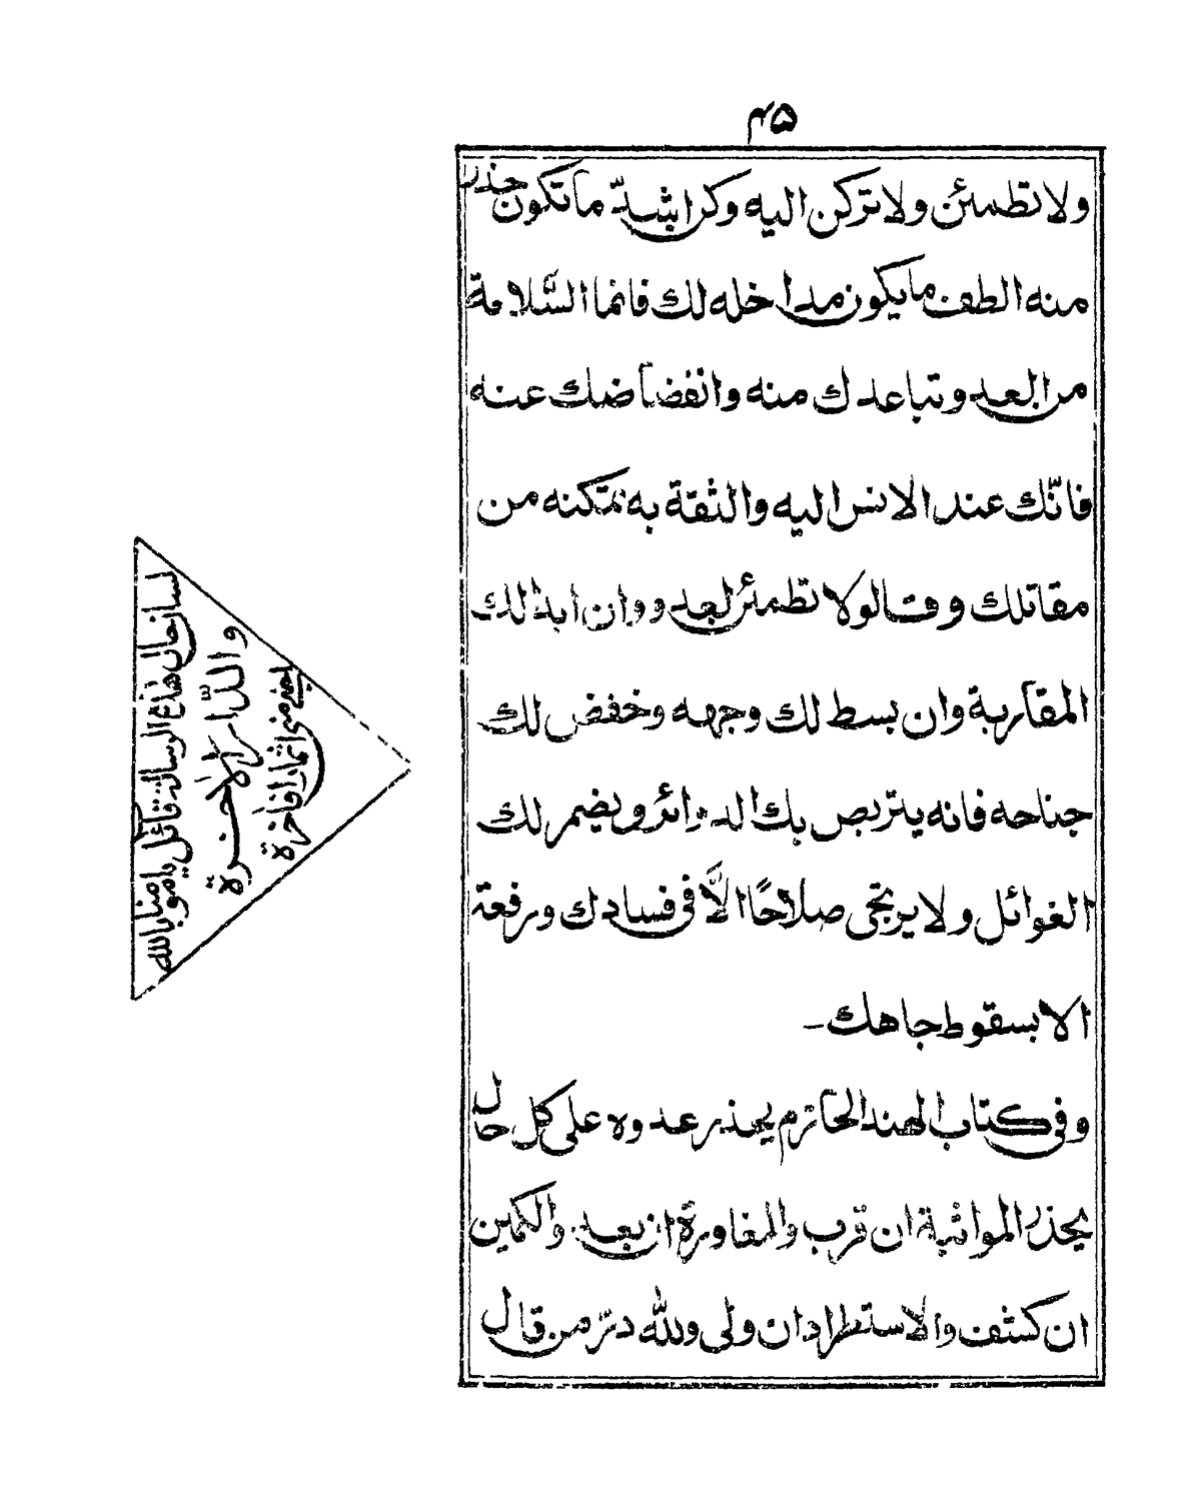 ۴۵
ولا تطمئن ولا تركن اليه وكن اشدّ ما تكون حذر
منه الطف ما يكون مداخله لك فانما السّلامة
من العدو تباعدك منه وانقضاضك عنه
فانّك عند الانس اليه والثقة به تمكنه من
مقاتلك وقالو لا تطمئن لعدو وان ابدا لك
المقاربة وان بسط لك وجهه وخفض لك
جناحه فانه يتربص بك الدوائر ويضمر لك
الغوائل ولا يرتجى صلاحًا الاَّ فى فسادك ورفعة
الا بسقوط جاهك –
وفى كتاب الهند الحازم يحذر عدوه على كل حال
يحذر المواثبة ان قرب والمغاورة ان بعد والكمين
ان كشف والاستطراد ان ولى ولله درّ من قال
لسان حال هذه الرسالة قائل يا مومنا بالله
والدّار الاخرة
اجنى منى اثمارا فاخرة